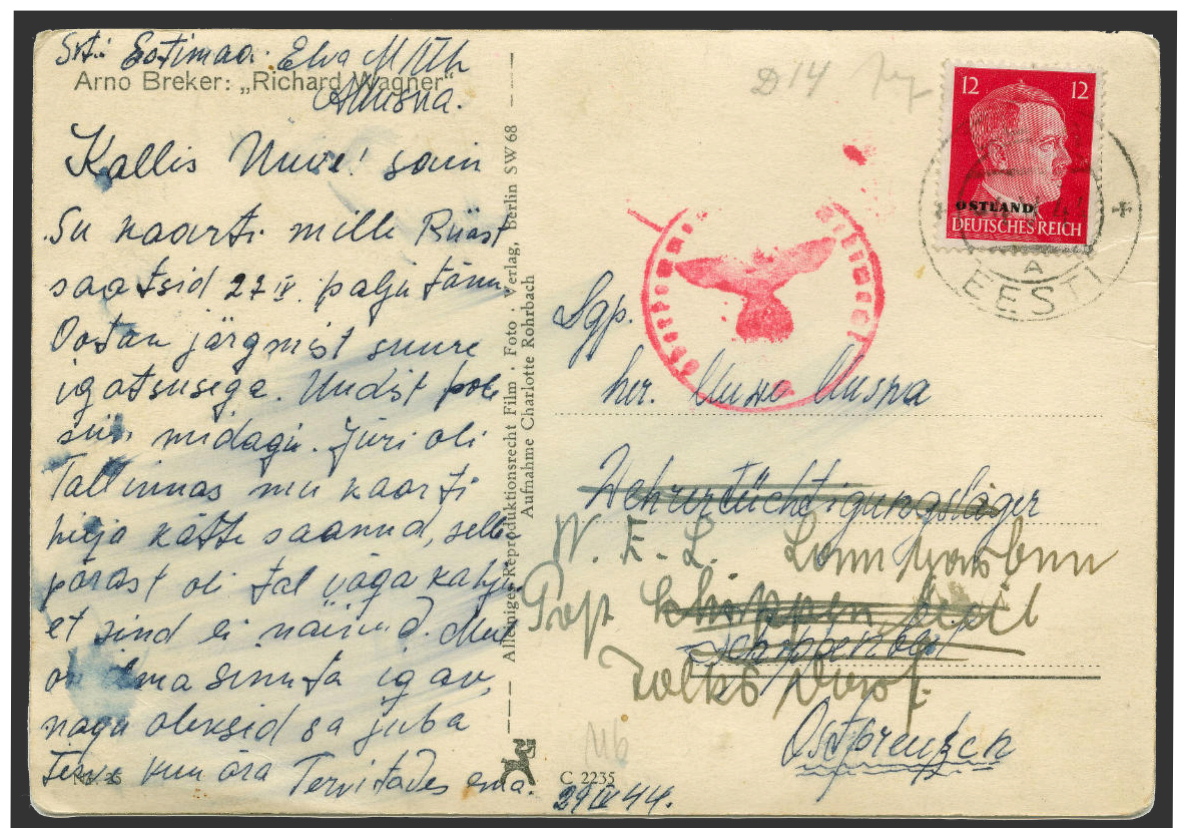 Arno Breker: „Richard Wagner“
Kallis Uuve! sain
Su kaarti mille Riiast
saatsid 27 IV. palju tänu.
Ootan järgmist suure
igatsusega. Uudist pole
siin midagi. Jüri oli
Tallinnas mu kaarti
hilja kätte saanud, selle
pärast oli tal väga kahju
et sind ei näinud. Mul
on ilma sinuta igav,
nagu oleksid sa juba
terve kuu ära Tervitades ema.
Nr. 26
Alleiniges Reproduktionsrecht Film · Foto · Verlag, Berlin SW 68
Aufnahme Charlotte Rohrbach
C 2235
29 IV 44.
D 14
12 12
OSTLAND
DEUTSCHES REICH
A
EESTI
Sgp.
her.
Wehrertüchtigungslager
W. E. L.
Post
Ostpreußen